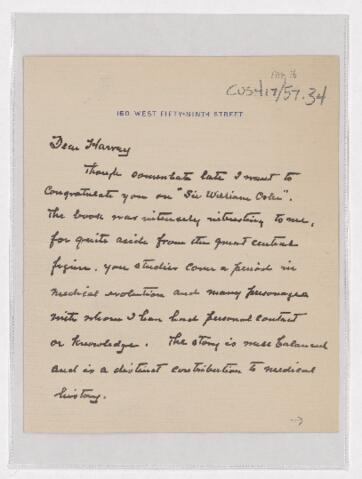 CUSH17/57.34
160 WEST FIFTY-NINTH STREET
Dear Harvey
Though somewhat late I want to
Congratulate you on "Sir William Osler".
The book was intensely interesting to me,
for quite aside from the great central
figure, you studies cover a period in
medical evolution and many personages
with whom I have had personal contact
or knowledge. The story is well balanced
and is a distinct contribution to medical
history.
→